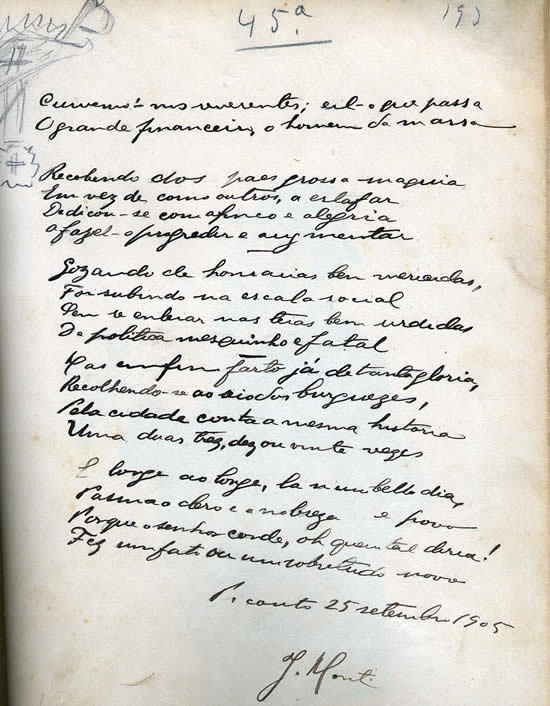 45.ª
193
Curvemo-nos reverentes; eil-o que passa
O grande financeiro, o homem da massa
Recebendo dos paes grossa maquia
Em vez de como outros, a esbafar
Dedicou-se com afinco e alegria
a fazel-o progredir e augmentar
Gozando de honrarias bem merecidas,
Foi subindo na escala social
Sem se enlear nas teias bem urdidas
De politica mesquinho e fatal
Mas emfim farto já de tanta gloria,
Recolhendo-se ao seio dos burguezes,
Pela cidade conta a mesma historia
Uma duas trez, dez ou vinte vezes
E longe ao longe, la n'um bello dia,
Pasma o clero e a nobreza e povo
Porque o senhor conde, oh quem tal diria!
Fez um fato ou um sobretudo novo
25 setembro 1905
J. Mont.